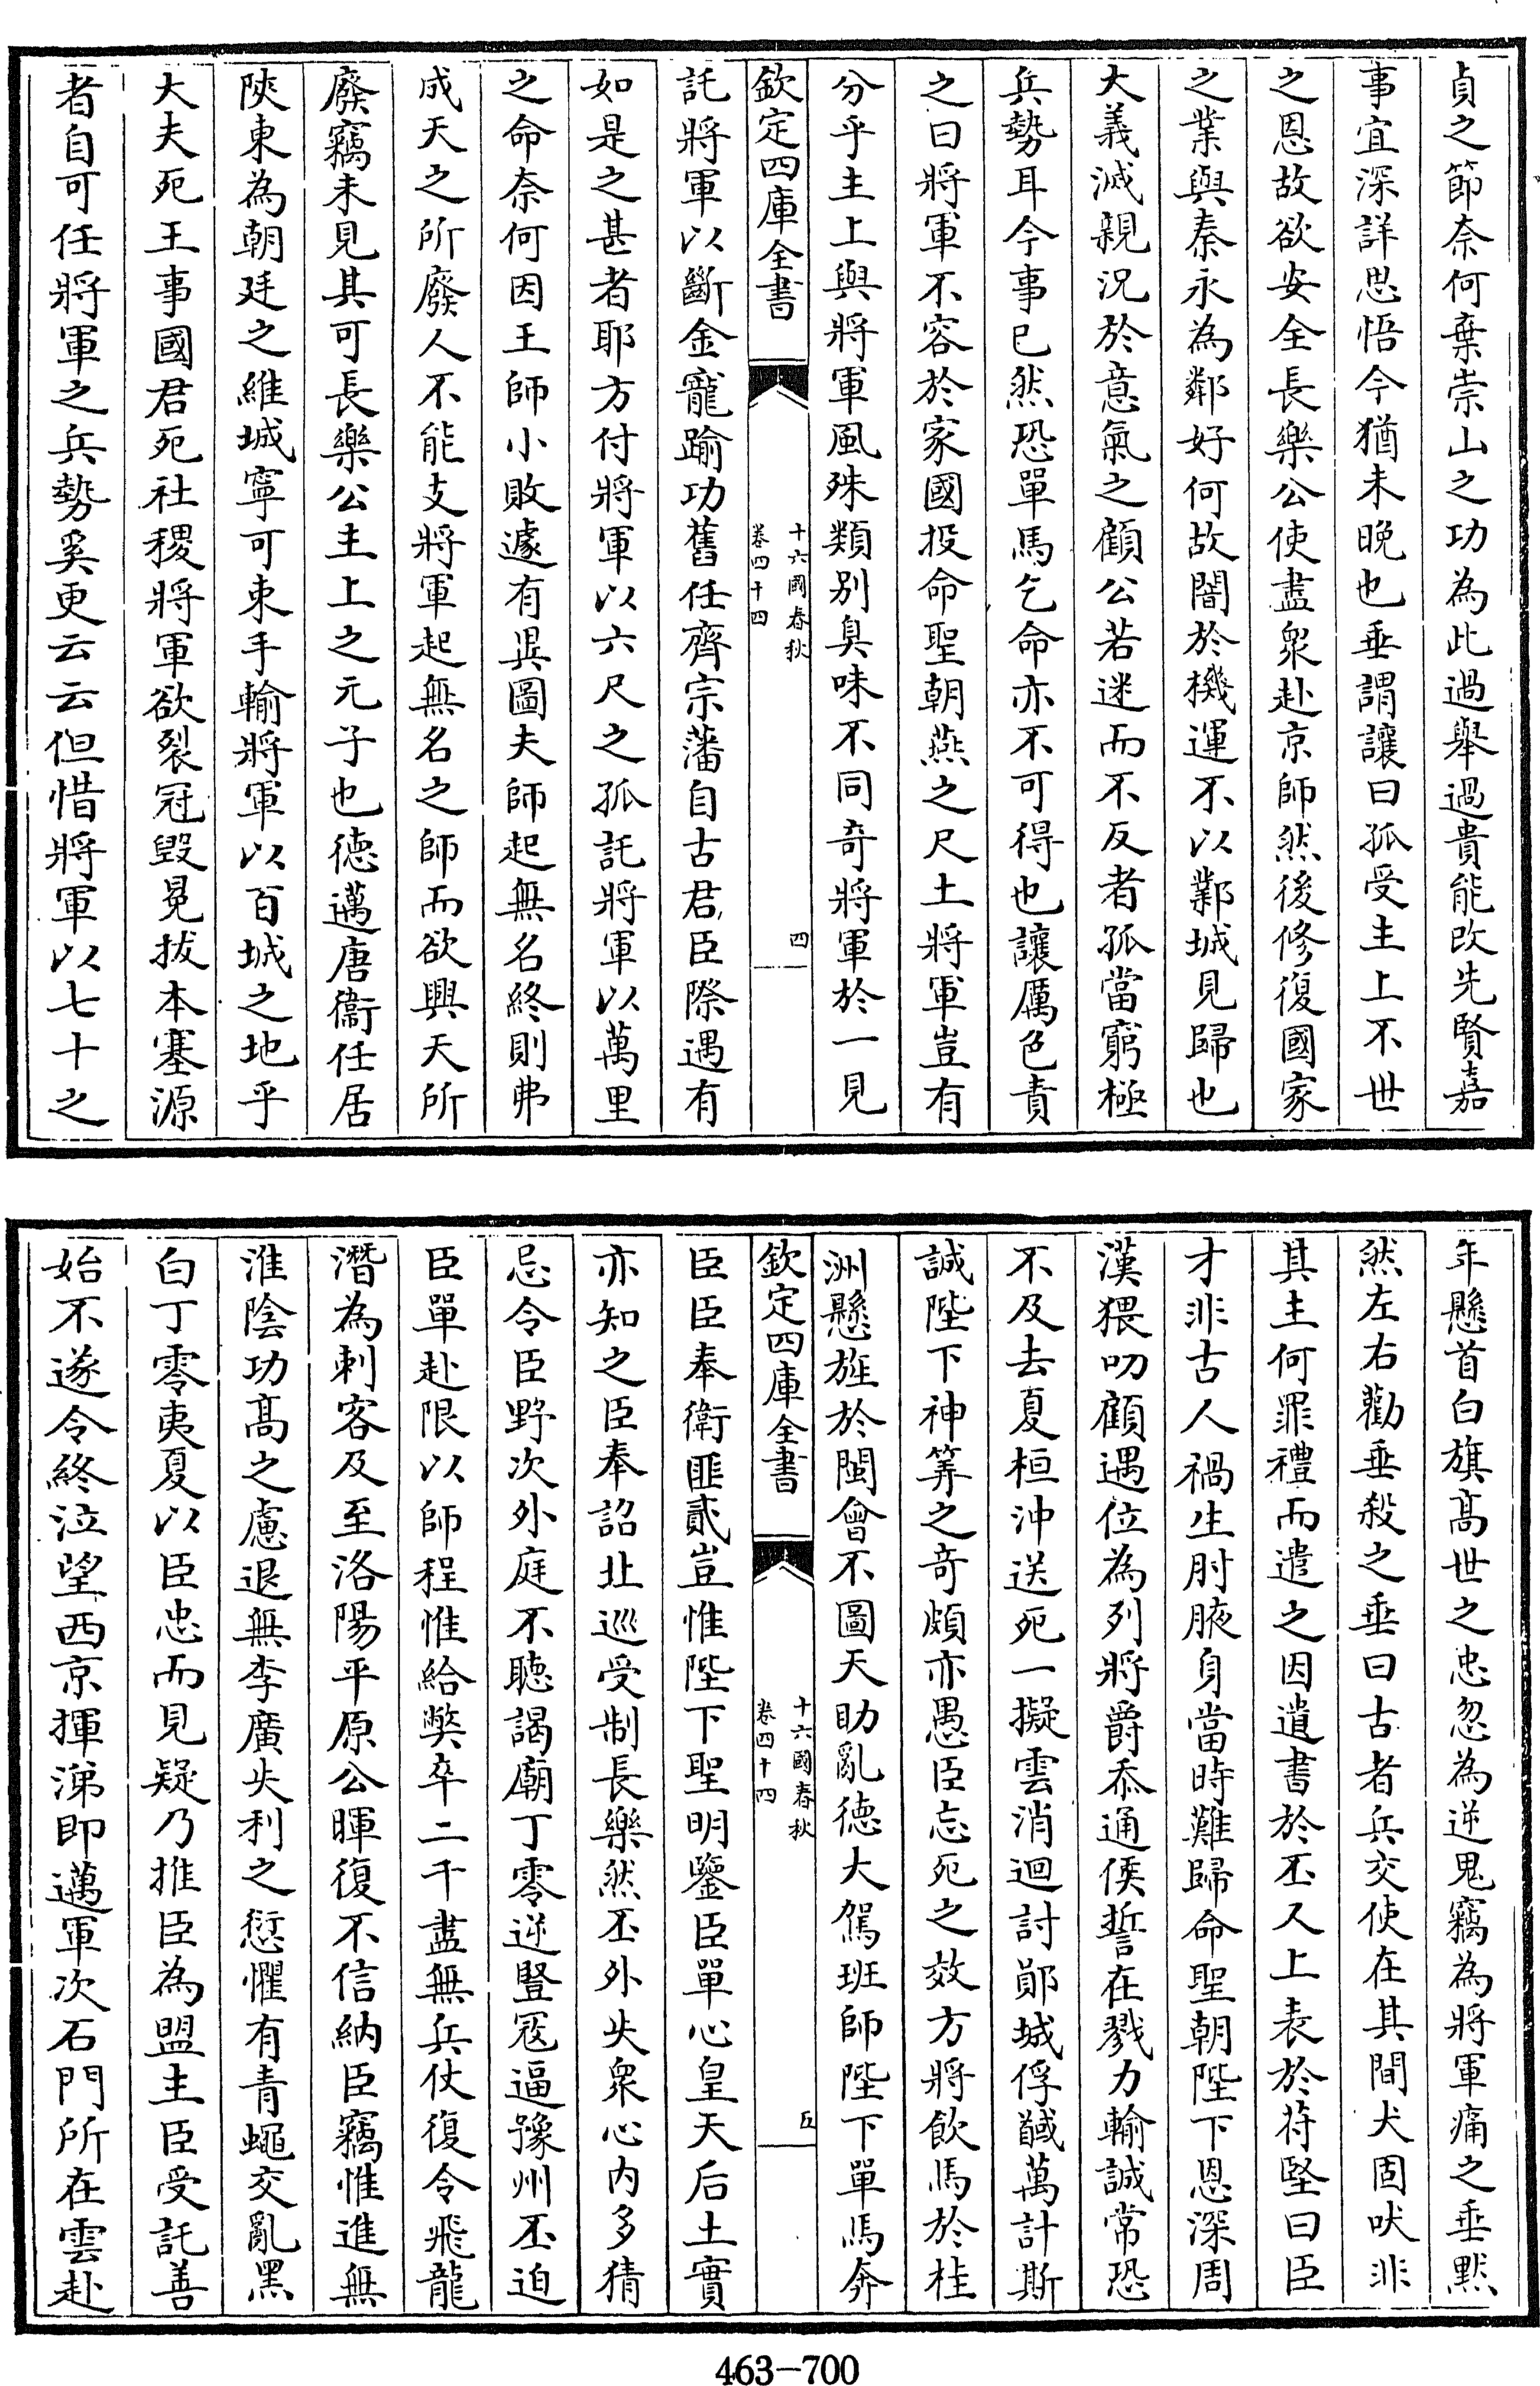 貞之節奈何棄崇山之功為此過舉過貴能改先賢嘉
事宜深詳思悟今猶未晚也垂謂讓曰孤受主上不世
之恩故欲安全長樂公使盡衆赴京師然後修復國家
之業與秦永為鄰好何故闇於機運不以鄴城見歸也
大義滅親況於意氣之顧公若迷而不反者孤當窮極
兵勢耳今事已然恐單馬乞命亦不可得也讓厲色責
之曰將軍不容於家國投命聖朝燕之尺土將軍豈有
分乎主上與將軍風殊類别臭味不同奇將軍於一見
欽定四庫全書
十六國春秋
卷四十四
四
託將軍以斷金寵踰功舊任齊宗藩自古君臣際遇有
如是之甚者耶方付將軍以六尺之孤託將軍以萬里
之命奈何因王師小敗遽有異圖夫師起無名終則弗
成天之所廢人不能支將軍起無名之師而欲興天所
廢竊未見其可長樂公主上之元子也徳邁唐衞任居
陜東為朝廷之維城寧可束手輸將軍以百城之地乎
大夫死王事國君死社稷將軍欲裂冠毀冕拔本塞源
者自可任將軍之兵勢奚更云云但惜將軍以七十之
年懸首白旗髙世之忠忽為逆鬼竊為將軍痛之垂黙
然左右勸垂殺之垂曰古者兵交使在其間犬固吠非
其主何罪禮而遣之因遺書於丕又上表於苻堅曰臣
才非古人禍生肘腋身當時難歸命聖朝陛下恩深周
漢猥叨顧遇位為列將爵忝通侯誓在戮力輸誠常恐
不及去夏桓沖送死一擬雲消迴討鄖城俘馘萬計斯
誠陛下神筭之奇頗亦愚臣忘死之效方將飲馬於桂
洲懸旌於閩會不圖天助亂徳大駕班師陛下單馬奔
欽定四庫全書
十六國春秋
卷四十四
五
臣臣奉衛匪貳豈惟陛下聖明鑒臣單心皇天后土實
亦知之臣奉詔北巡受制長樂然丕外失衆心内多猜
忌令臣野次外庭不聴謁廟丁零逆豎寇逼豫州丕迫
臣單赴限以師程惟給弊卒二千盡無兵仗復令飛龍
潛為刺客及至洛陽平原公暉復不信納臣竊惟進無
淮陰功髙之慮退無李廣失利之愆懼有青蠅交亂黑
白丁零夷夏以臣忠而見疑乃推臣為盟主臣受託善
始不遂令終泣望西京揮涕即邁軍次石門所在雲赴
463-700